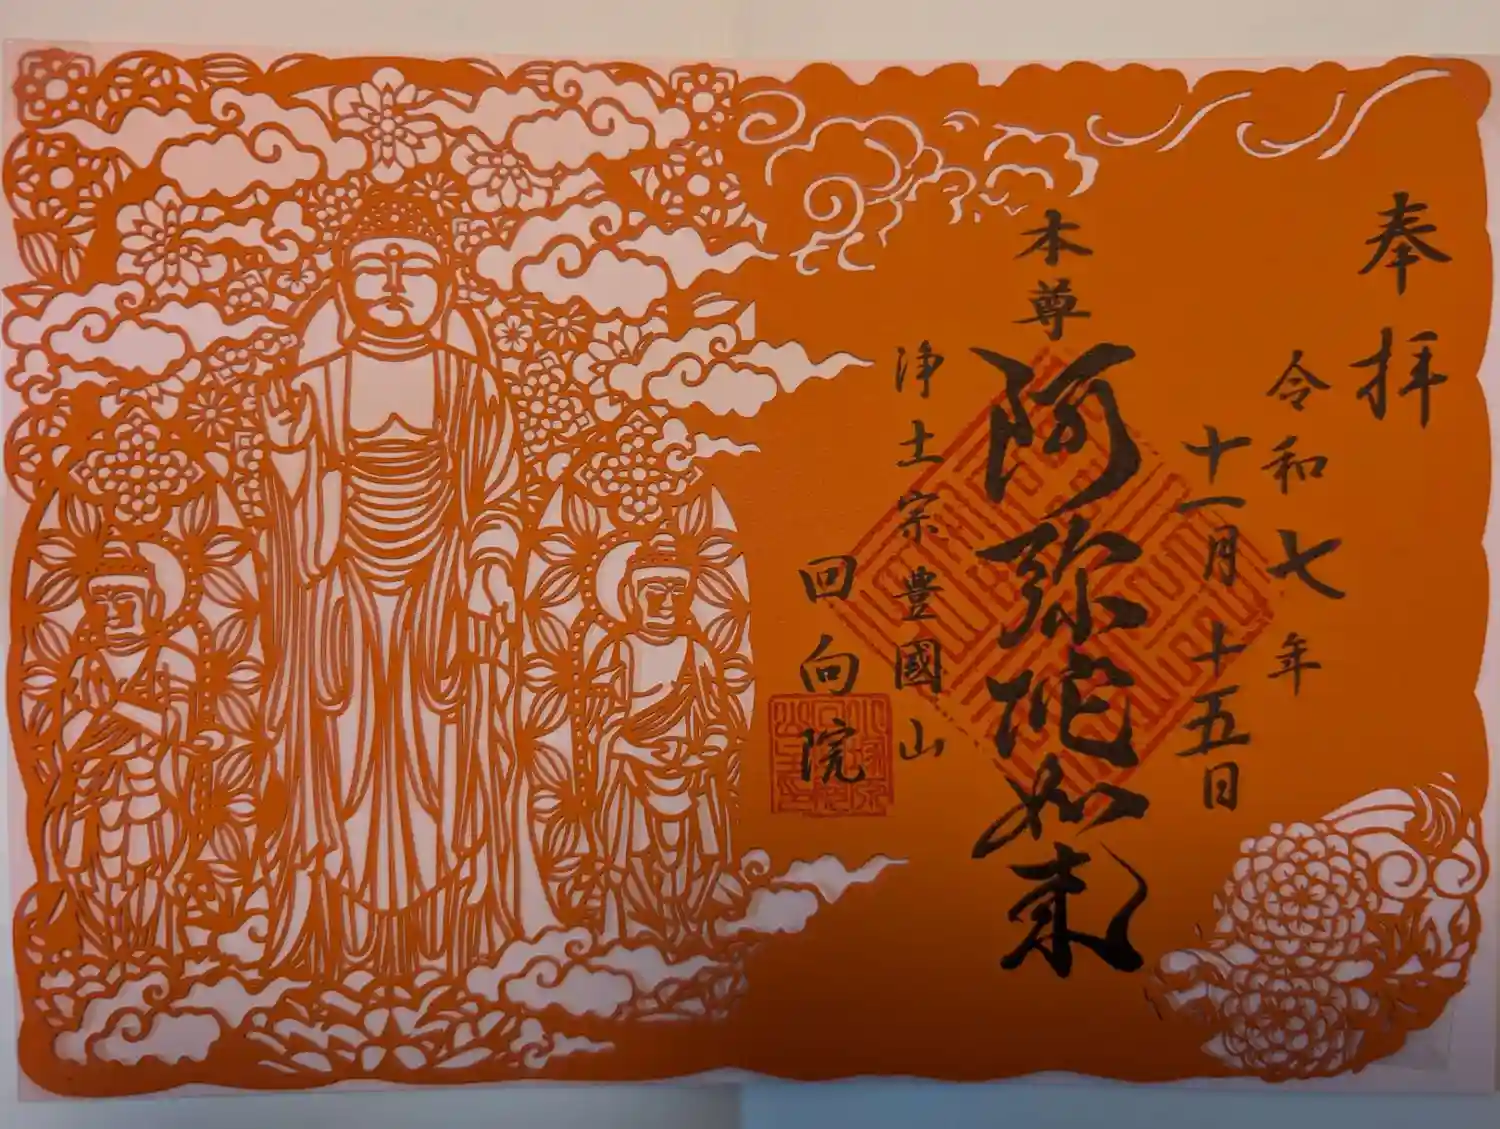 奉拝
令和七年
十一月十五日
本尊
阿弥陀如来
浄土宗豊國山
回向院